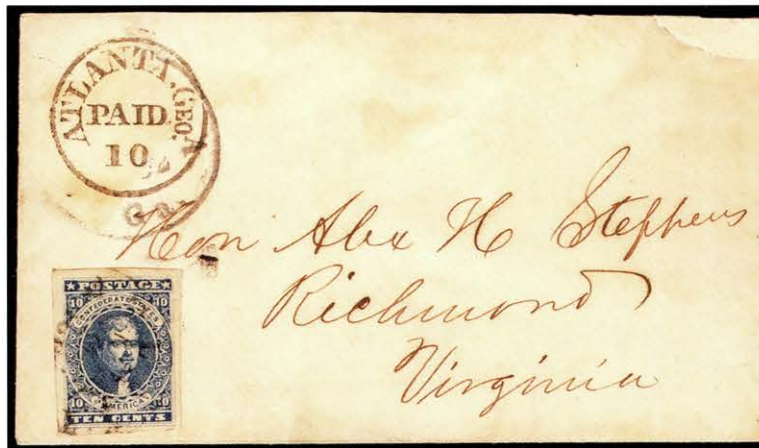 ATLANTA, GEO.
PAID
10
Ga.
Hon Alex H Stephens
Richmond
Virginia
POSTAGE
10 10
CONFEDERATE STATES
OF AMERICA
10 10
TEN CENTS